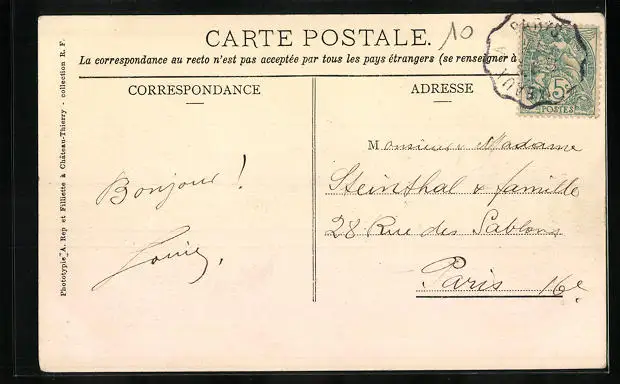 CARTE POSTALE.
10
La correspondance au recto n'est pas acceptée par tous les pays étrangers (se renseigner à
CORRESPONDANCE
ADRESSE
Bonjour !
Monsieur & Madame
Steinthal & famille
28 Rue des Sablons
Paris 16e
5
POSTES
Phototypie A. Rep et Filliette à Château-Thierry - collection R. F.